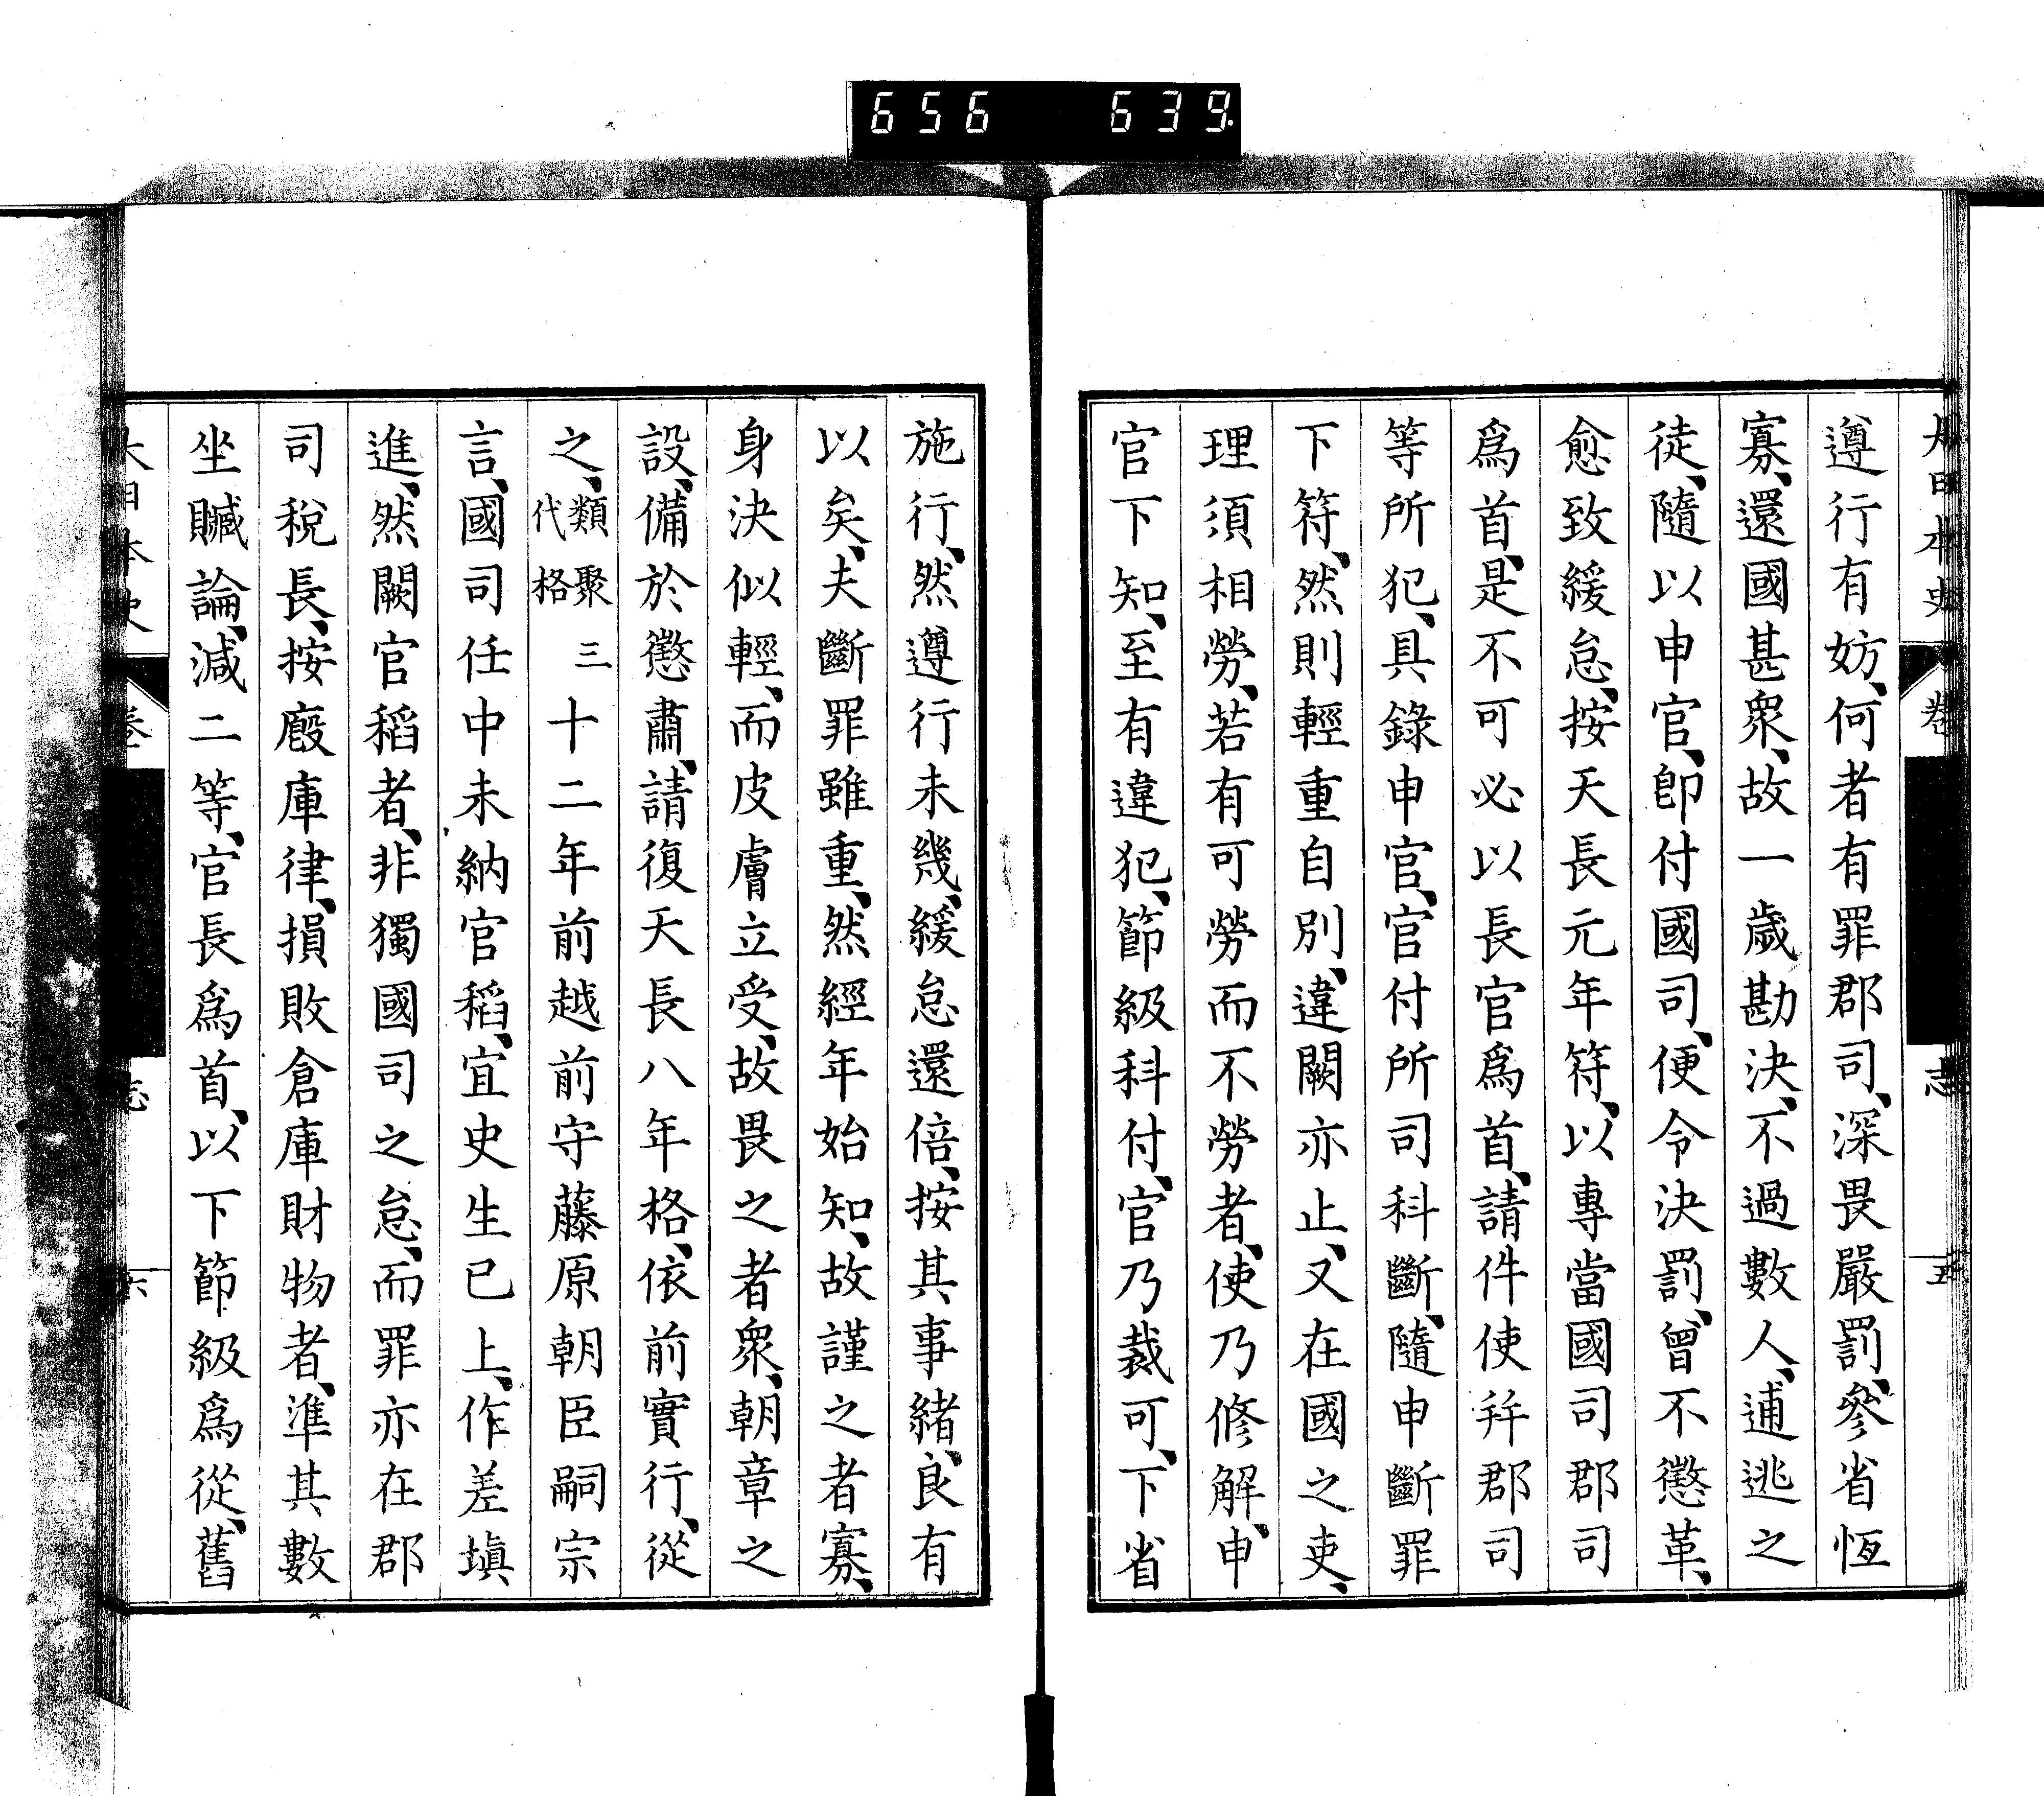 656 639.
大日本史 卷 志 五
遵行有妨、何者有罪郡司、深畏嚴罰、參省恆
寡、還國甚衆、故一歲勘決、不過數人、逋逃之
徒、隨以申官、卽付國司、便令決罰、曾不懲革、
愈致緩怠、按天長元年符、以專當國司郡司
爲首、是不可必以長官爲首、請件使幷郡司
等所犯、具錄申官、官付所司科斷、隨申斷罪
下符、然則輕重自別、違闕亦止、又在國之吏、
理須相勞、若有可勞而不勞者、使乃修解、申
官下知、至有違犯、節級科付、官乃裁可、下省
施行、然遵行未幾、緩怠還倍、按其事緖、良有
以矣、夫斷罪雖重、然經年始知、故謹之者寡、
身決似輕、而皮膚立受、故畏之者衆、朝章之
設、備於懲肅、請復天長八年格、依前實行、從
之、類聚三代格 十二年前越前守藤原朝臣嗣宗
言、國司任中未納官稻、宜史生已上、作差塡
進、然闕官稻者、非獨國司之怠、而罪亦在郡
司稅長、按廏庫律、損敗倉庫財物者、準其數
坐贓論、減二等、官長爲首、以下節級爲從、舊
大日本史 卷 志 六